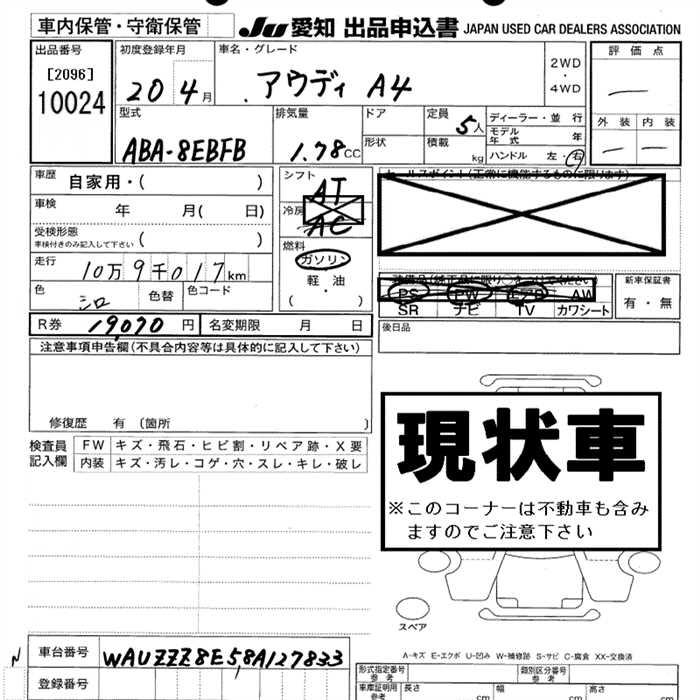 車内保管・守衛保管 JU 愛知 出品申込書 JAPAN USED CAR DEALERS ASSOCIATION
出品番号 初度登録年月 車名・グレード 評価点
[2096] 20 4月 アウディ A4 2WD・4WD
10024
外装 内装
型式 排気量 ドア 定員 5人 ディーラー・並 行
ABA-8EBFB 1.78CC 形状 積載 kg モデル年式 年
ハンドル 左・右
車歴 自家用・( ) シフト AT セールスポイント(正常に機能するものに限ります)
車検 年 月( 日) 冷房 AC
受検形態
車検付きのみ記入して下さい ( )
燃料 ガソリン
軽・油
( ・ )
走行 10万9千017km
色 シロ 色替 色コード
装備品(純正品に限り、をつけてください) 新車保証書
PS PW エアB AW 有・無
SR ナビ TV カワシート
R券 19070 円 名変期限 月 日 後日品
注意事項申告欄(不具合内容等は具体的に記入して下さい)
修復歴 有 (箇所 )
検査員記入欄 FW キズ・飛石・ヒビ割・リペア跡・X要
内装 キズ・汚レ・コゲ・穴・スレ・キレ・破レ
現状車
※このコーナーは不動車も含み
ますのでご注意下さい
スペア
A-キズ E-エクボ U-凹み W-補修跡 S-サビ C-腐食 XX-交換済
N 車台番号 WAUZZZ8E58A127833
登録番号
型式指定番号 参考 類別区分番号 参考
車庫証明用 参考 長さ cm 幅 cm 高さ cm